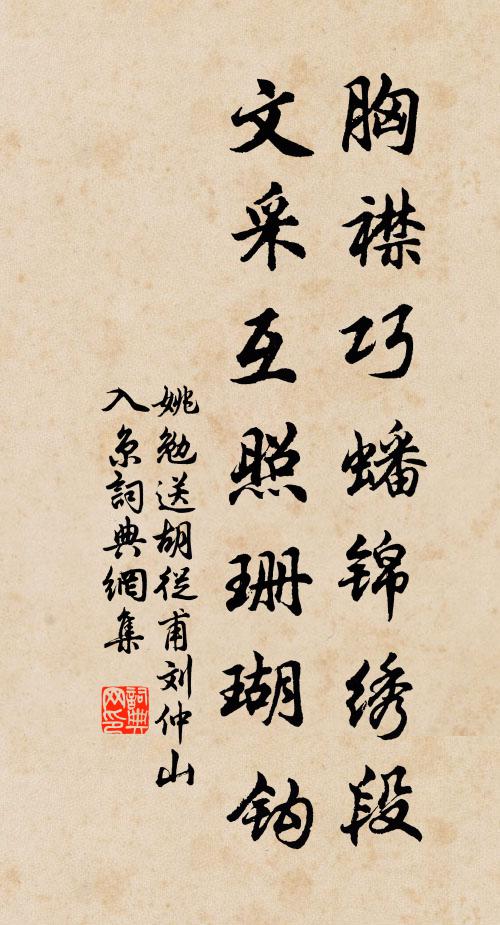 胸襟巧蟠锦绣段
文采互照珊瑚钩
姚勉送胡従甫刘仲山
入京詞典網集
詞典网印